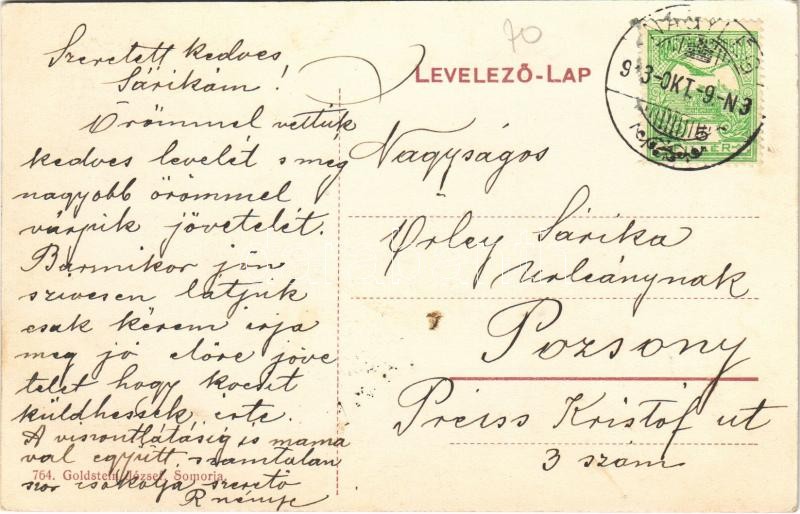 70
Szeretett kedves
Sárikám!
Örömmel vettük
kedves levelét s még
nagyobb örömmel
várjuk jövetelét.
Bármikor jön
szivesen látjuk
csak kérem irja
meg jó előre jöve
telét hogy kocsit
küldhessek érte.
A viszontlátásig is mamá
val együtt számtalan
szor csókolja szerető
R nénye
LEVELEZŐ-LAP
913-OKT.-9-N3
Nagyságos
Örley Sárika
urleánynak
Pozsony
Preiss Kristóf ut
3 szám
764. Goldstein József, Somorja.